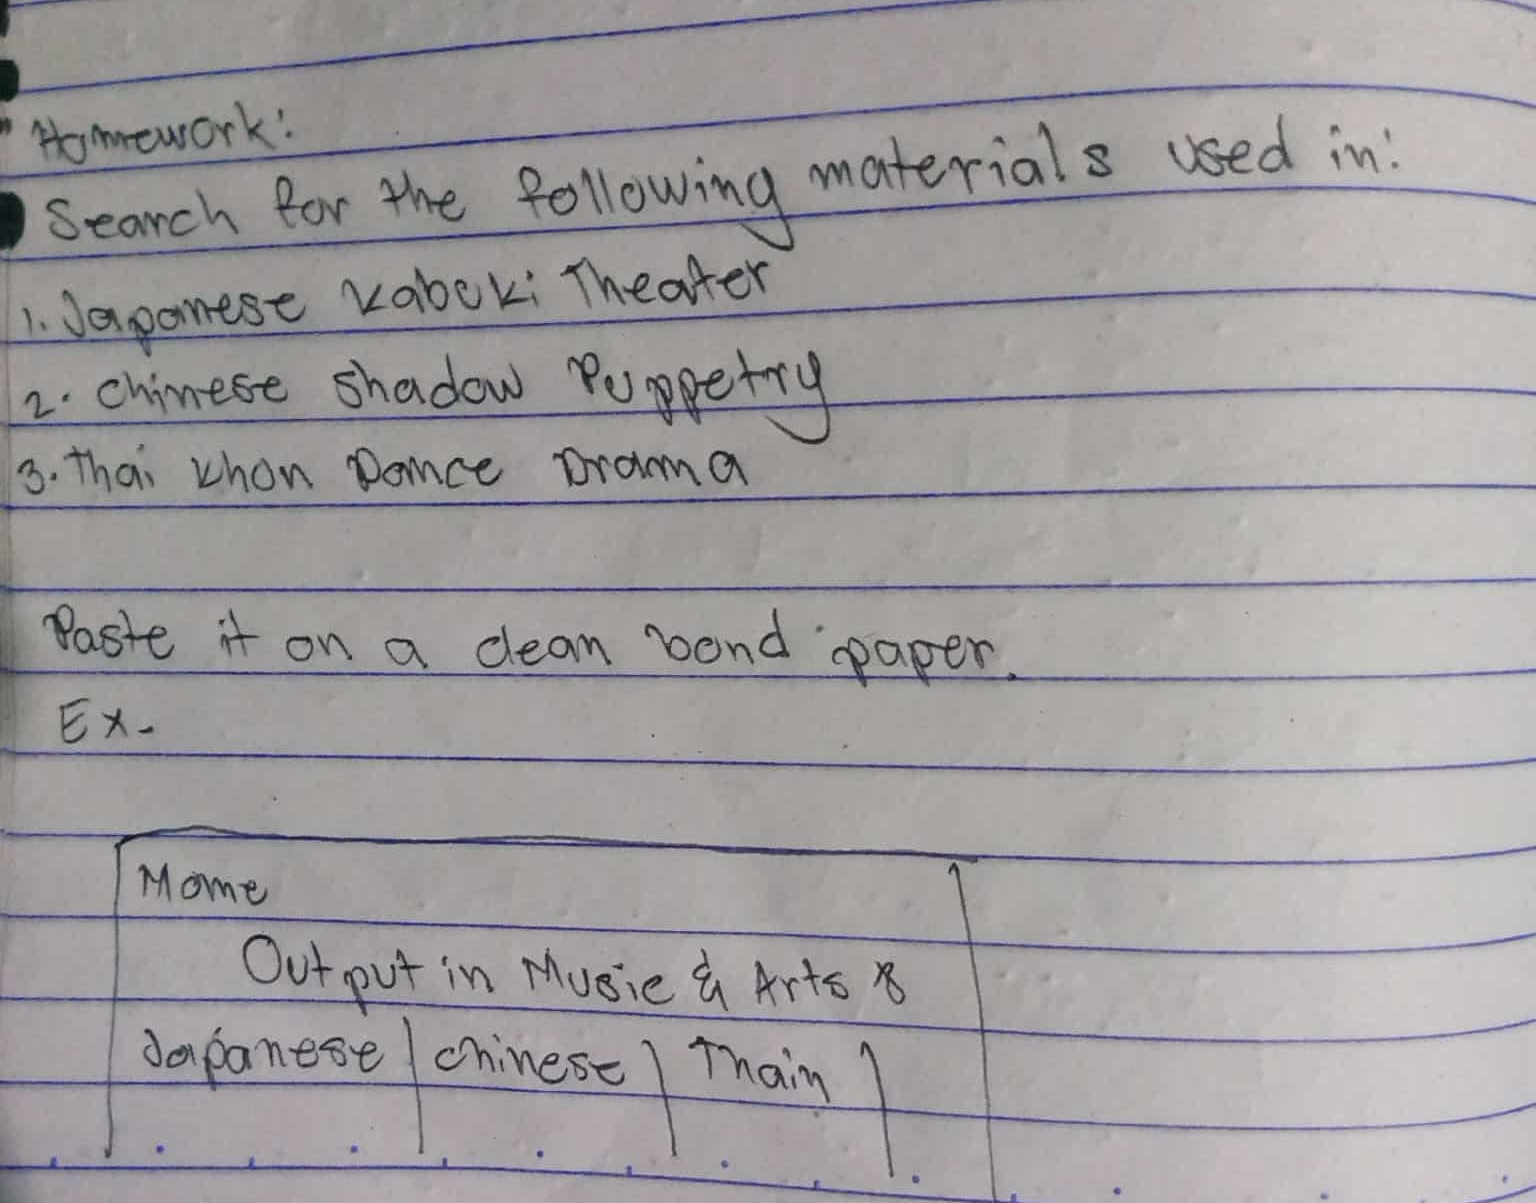 Homework:
Search for the following materials used in:
1. Japanese Kabuki Theater
2. Chinese Shadow Puppetry
3. Thai Khon Dance Drama
Paste it on a clean bond paper.
Ex.
Name
Output in Music & Arts 8
Japanese | Chinese | Thain |